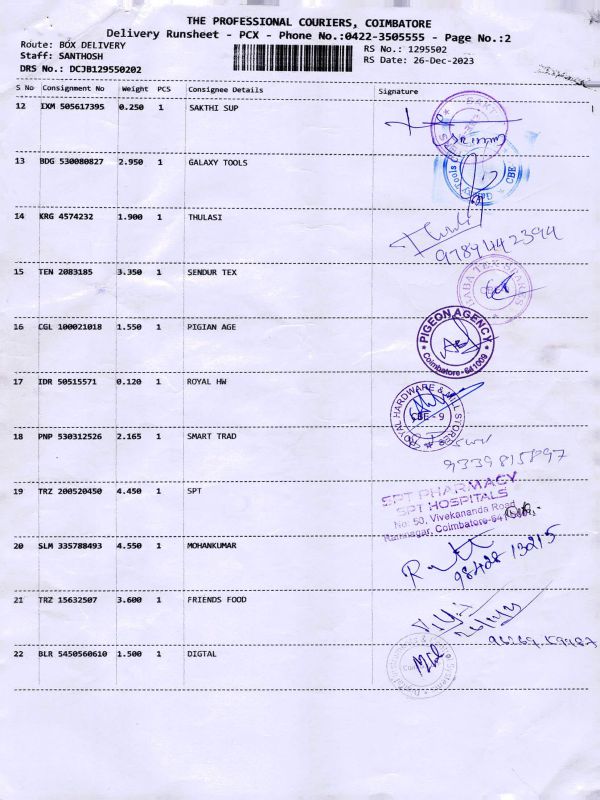 THE PROFESSIONAL COURIERS, COIMBATORE
Delivery Runsheet - PCX - Phone No.:0422-3505555 - Page No.:2
Route: BOX DELIVERY
RS No.: 1295502
Staff: SANTHOSH
RS Date: 26-Dec-2023
DRS No.: DCJB129550202
S No Consignment No Weight PCS Consignee Details Signature
12 IXM 505617395 0.250 1 SAKTHI SUP
13 BDG 530080827 2.950 1 GALAXY TOOLS
CBE
14 KRG 4574232 1.900 1 THULASI
9789442394
15 TEN 2083185 3.350 1 SENDUR TEX
16 CGL 100021018 1.550 1 PIGIAN AGE
PIGEON AGENCY
Coimbatore-641009
17 IDR 50515571 0.120 1 ROYAL HW
ROYAL HARDWARE & MILL STORES
CBE - 9
18 PNP 530312526 2.165 1 SMART TRAD
19 TRZ 200520450 4.450 1 SPT
SPT PHARMACY
SPT HOSPITALS
No: 50, Vivekananda Road
Ramnagar, Coimbatore-641
20 SLM 335788493 4.550 1 MOHANKUMAR
98428-13215
21 TRZ 15632507 3.600 1 FRIENDS FOOD
22 BLR 5450560610 1.500 1 DIGTAL